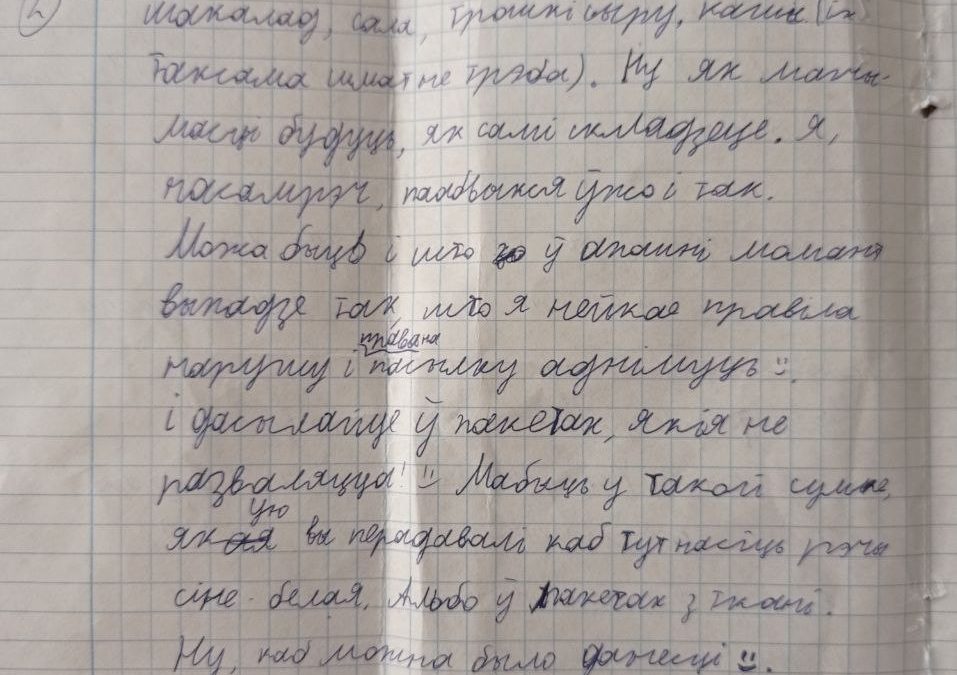 2
шакалад, сала, трошкі сыру, кашы (іх
таксама шмат не трэба). Ну як магчы-
масць будуць, як самі складзеце. Я,
насамрэч, паабвыкся ўжо і так.
Можа быць і што ў апошні момант
выпадзе так, што я нейкае правіла
парушу і права на пасылку аднімуць :).
і дасылайце ў пакетах, якія не
разваляцца! :) Мабыць у такой сумке,
якую вы перадавалі каб тут насіць рэчы
сіне-белая. Альбо ў пакетах з ткані.
Ну, каб можна было данесці :).